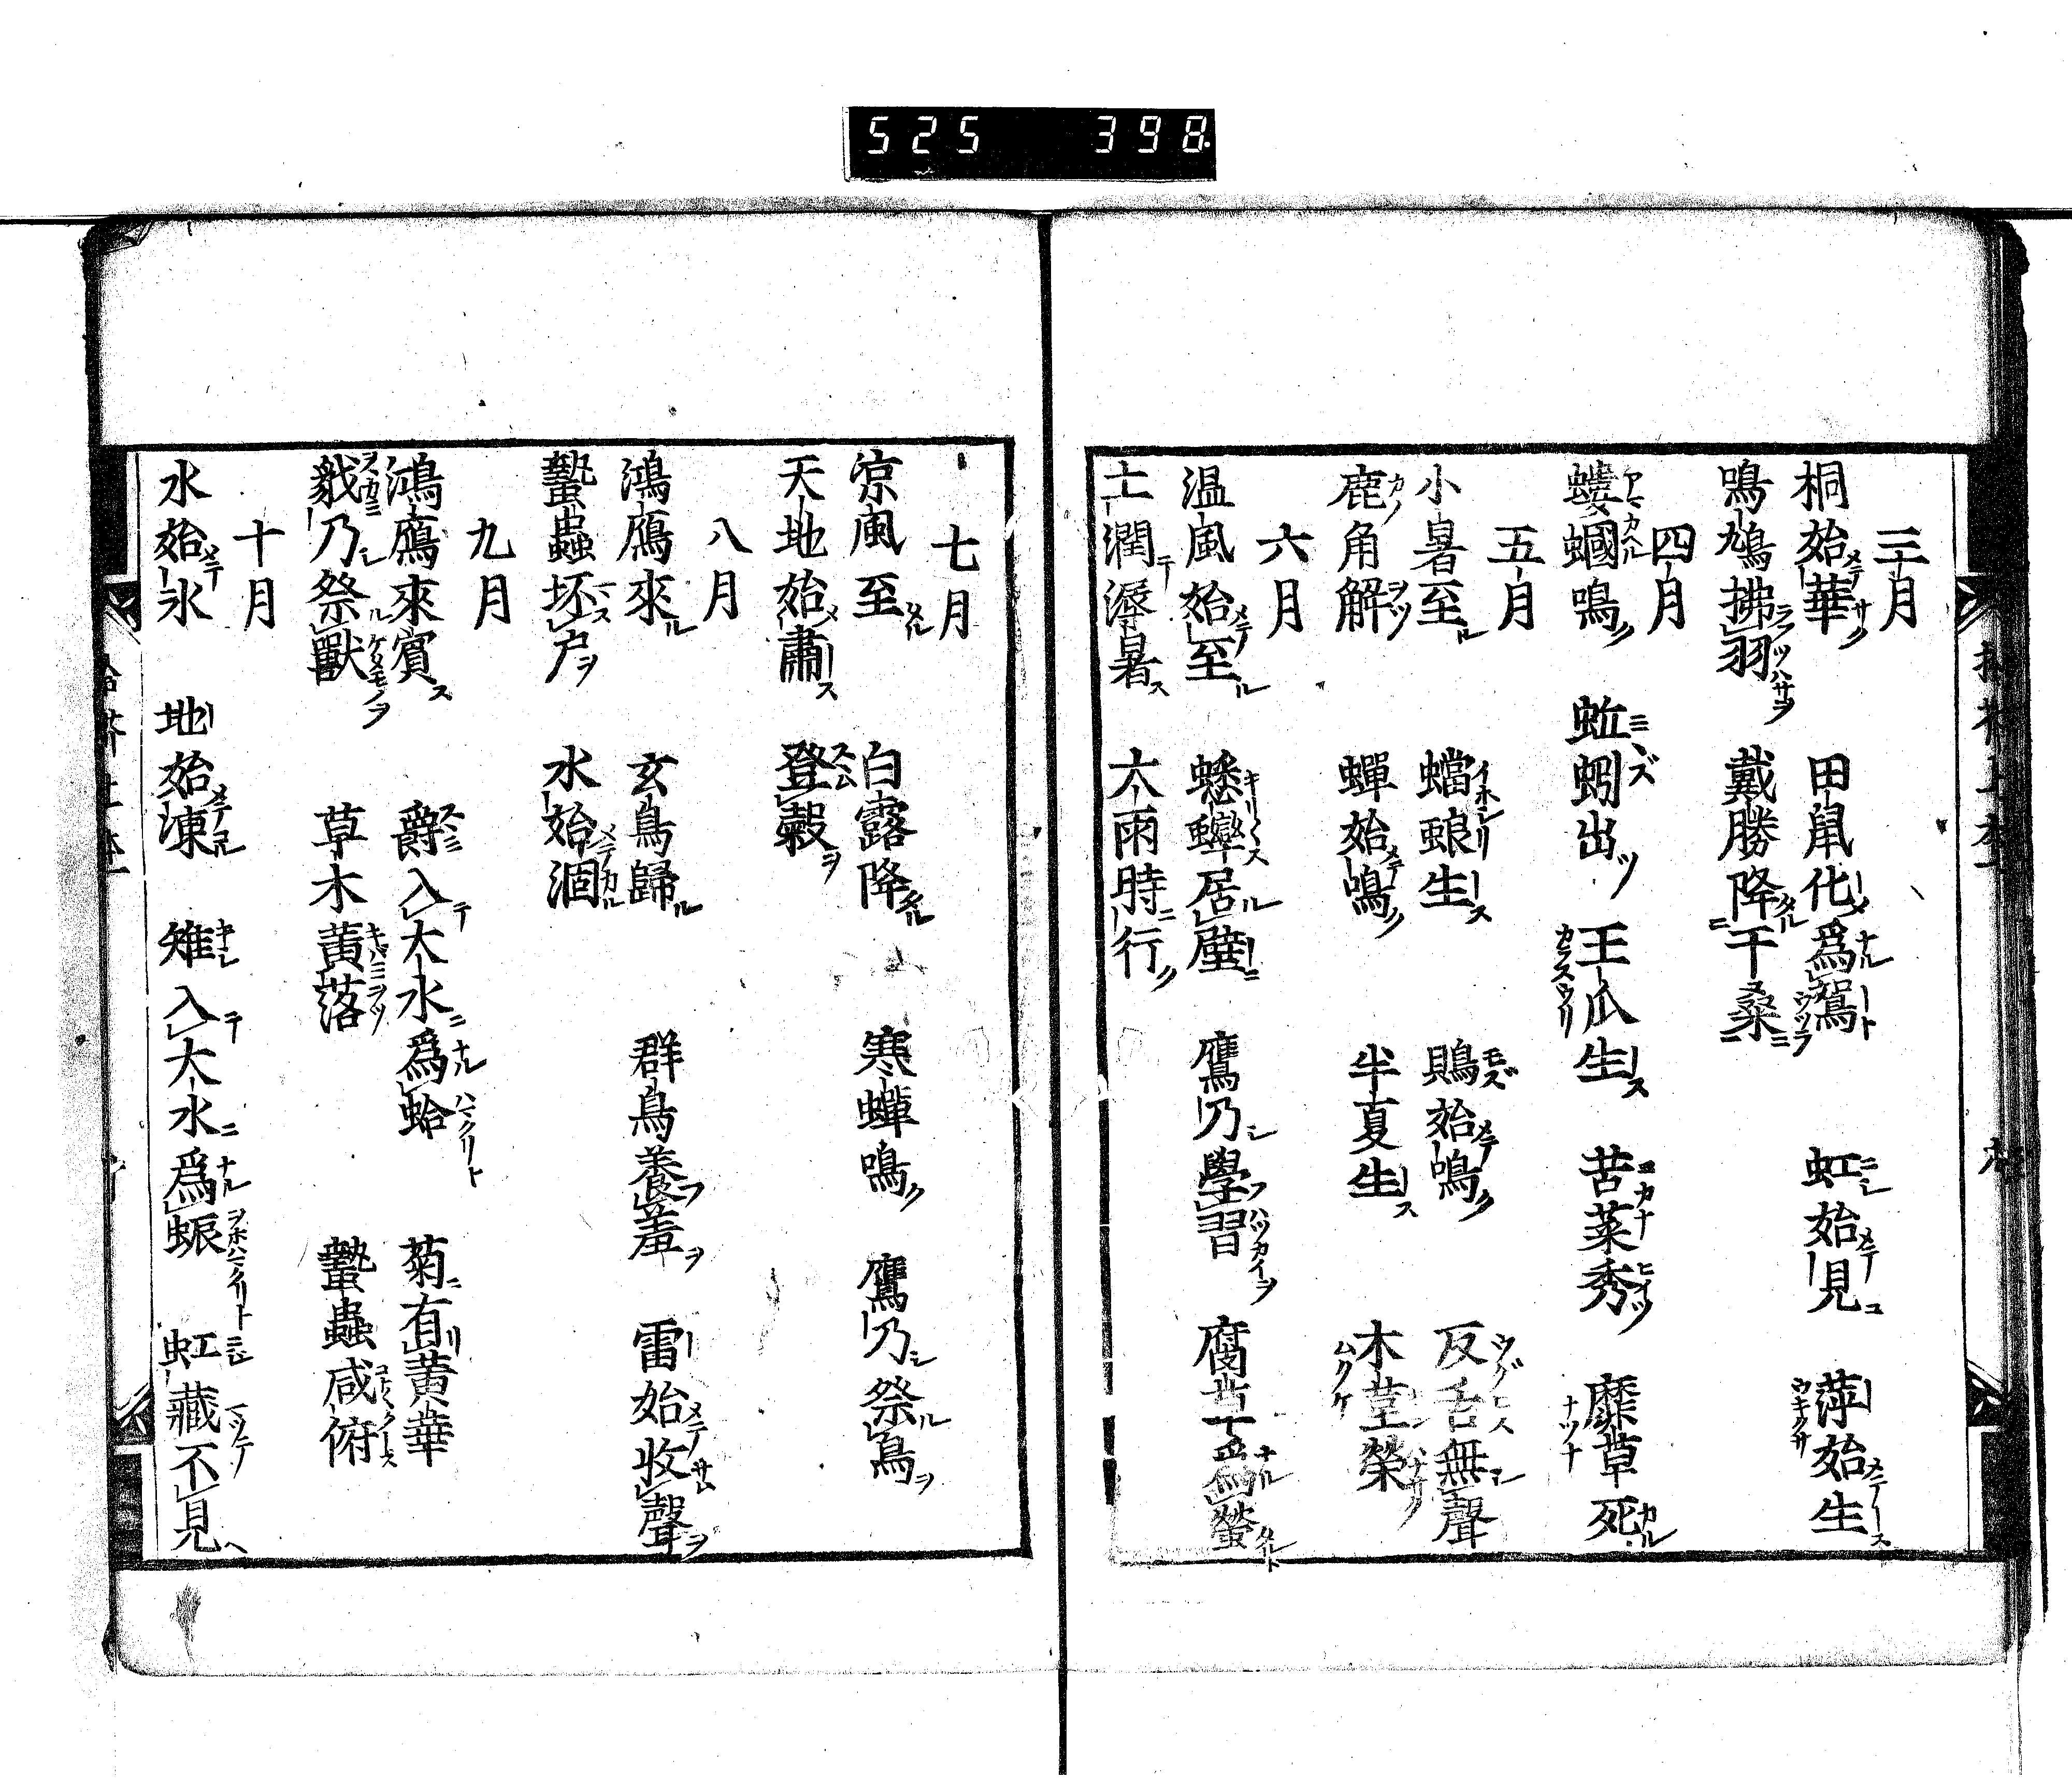 525 398
三月
桐始華 田鼠化爲鴽 虹始見 萍始生
鳴鳩拂羽 戴勝降于桑
四月
螻蟈鳴 蚯蚓出 王瓜生 苦菜秀 靡草死
五月
小暑至 蟷蜋生 鵙始鳴 反舌無聲
鹿角解 蟬始鳴 半夏生 木菫榮
六月
温風始至 蟋蟀居壁 鷹乃學習 腐草爲螢
土潤溽暑 大雨時行
七月
涼風至 白露降 寒蟬鳴 鷹乃祭鳥
天地始肅 登穀
八月
鴻鴈來 玄鳥歸 群鳥養羞 雷始收聲
蟄蟲坯戸 水始涸
九月
鴻鴈來賓 爵入大水爲蛤 菊有黄華
豺乃祭獸 草木黄落 蟄蟲咸俯
十月
水始氷 地始凍 雉入大水爲蜄 虹藏不見